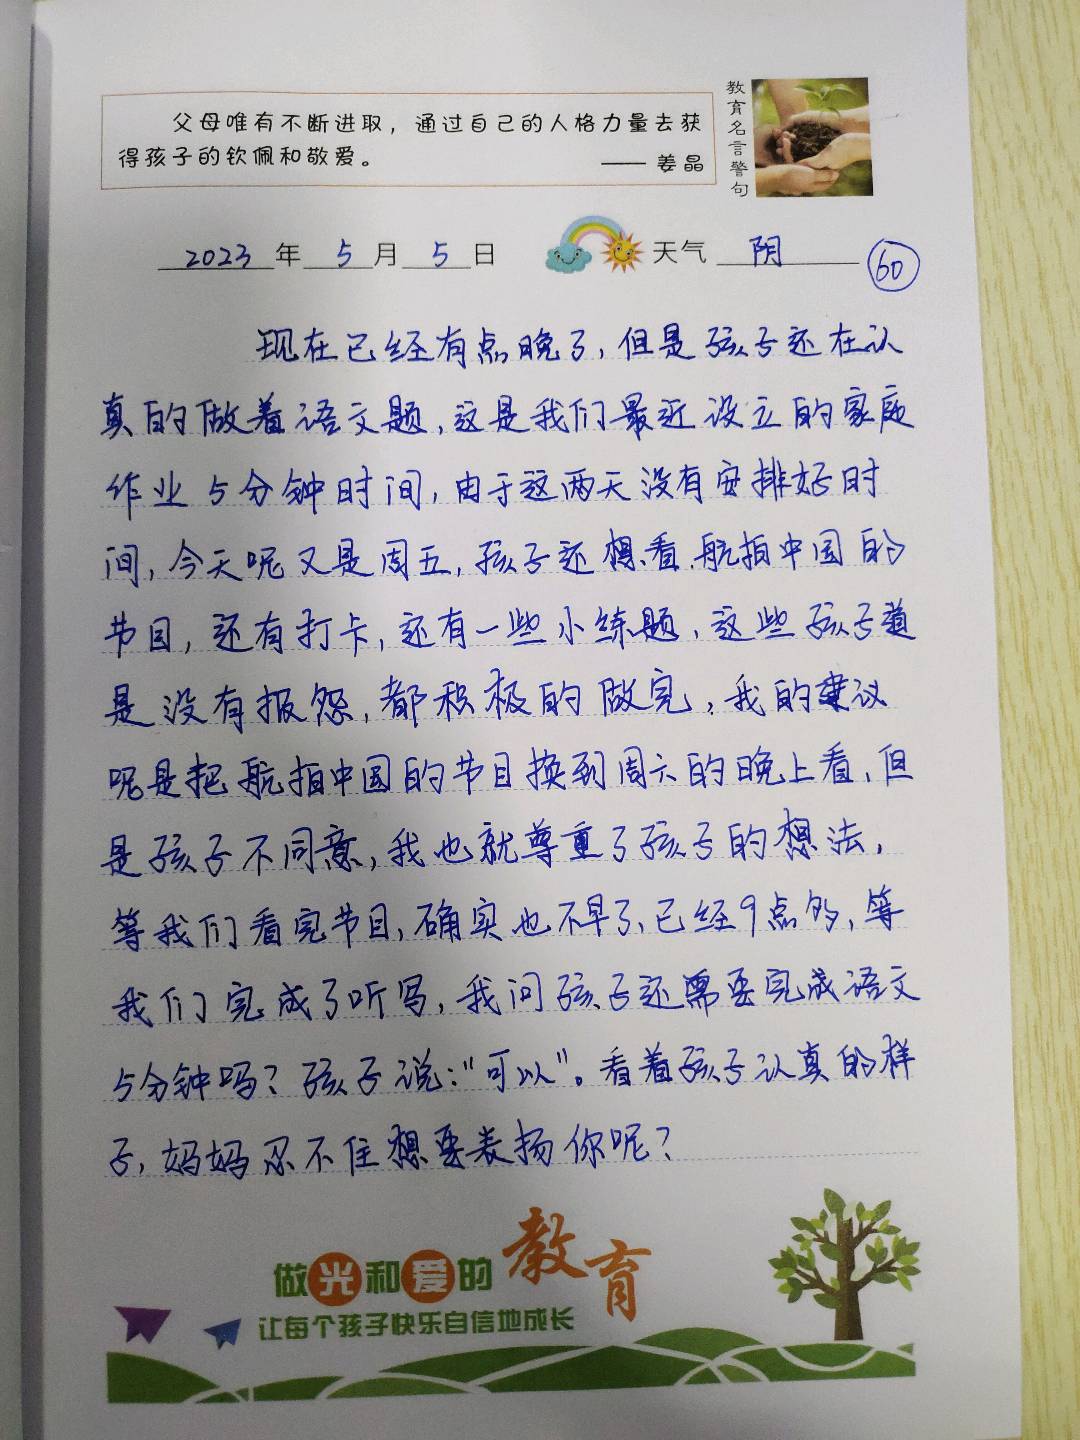 父母唯有不断进取，通过自己的人格力量去获
得孩子的钦佩和敬爱。 —— 姜晶
教育名言警句
2023年5月5日 天气 阴 60
现在已经有点晚了,但是孩子还在认
真的做着语文题,这是我们最近设立的家庭
作业5分钟时间,由于这两天没有安排好时
间,今天呢又是周五,孩子还想看航拍中国的
节目,还有打卡,还有一些小练题,这些孩子道
是没有报怨,都积极的做完,我的建议
呢是把航拍中国的节目换到周六的晚上看,但
是孩子不同意,我也就尊重了孩子的想法,
等我们看完节目,确实也不早了,已经9点多,等
我们完成了听写,我问孩子还需要完成语文
5分钟吗?孩子说:"可以"。看着孩子认真的样
子,妈妈忍不住想要表扬你呢?
做光和爱的教育
让每个孩子快乐自信地成长